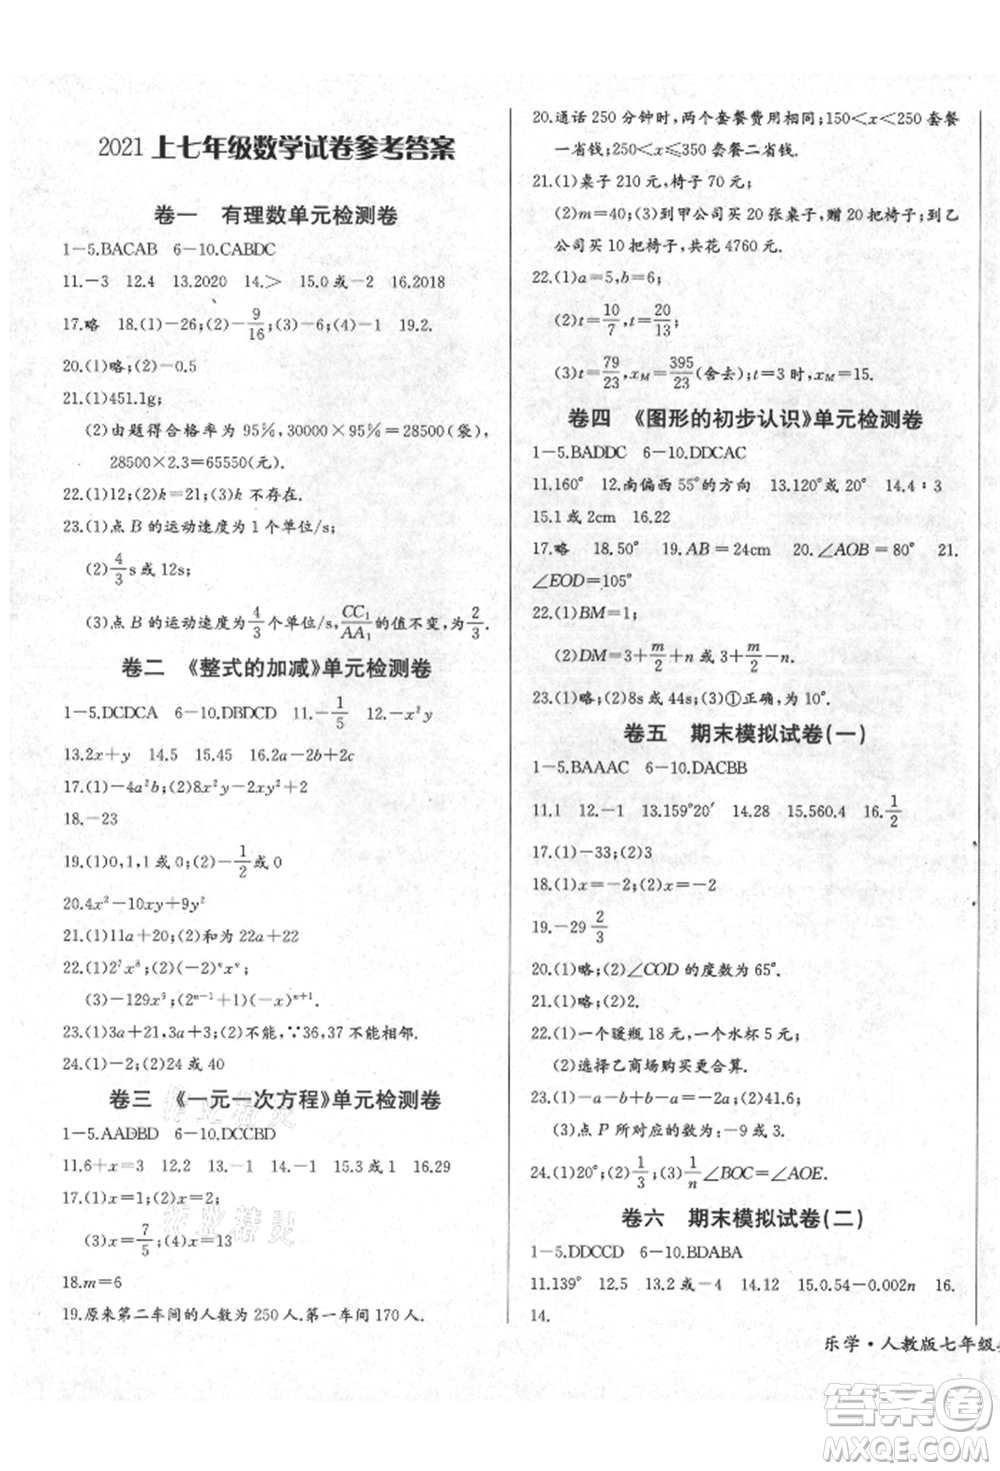 2021 上七年级数学试卷参考答案
卷一 有理数单元检测卷
1—5.BACAB 6—10.CABDC
11.−3 12.4 13.2020 14.> 15.0或−2 16.2018
17.略 18.(1)−26;(2)−9/16;(3)−6;(4)−1 19.2.
20.(1)略;(2)−0.5
21.(1)451.1g;
(2)由题得合格率为95%,30000×95%=28500(袋),
28500×2.3=65550(元).
22.(1)k=1;(2)k不存在.
23.(1)点 B 的运动速度为1个单位/s;
(2)4/3s或12s;
(3)点 B 的运动速度为4/3个单位/s,CC₁/AA₁的值不变,为2/3.
卷二 《整式的加减》单元检测卷
1—5.DCDCA 6—10.DBDCD 11.−1/5 12.−x²y
13.2x+y 14.5 15.45 16.−2a−2b+2c
17.(1)−4a²b;(2)−a²b−ab²+2
18.−23
19.(1)0,1,1或0;(2)−1/2或0
20.4x²−15xy−9y²
21.(1)11a+20;(2)和为22a+22
22.(1)2⁷x⁸;(2)(−2)ⁿxⁿ;
(3)−129x⁹;(2ⁿ⁻¹+1)(−x)ⁿ⁺¹
23.(1)3a+21,3a+3;(2)不能,∵36,37不能相邻.
24.(1)−2;(2)24或40
卷三 《一元一次方程》单元检测卷
1—5.AADBD 6—10.DCCBD
11.6+x=3 12.2 13.−1 14.−1 15.3或1 16.29
17.(1)x=1;(2)x=2;
(3)x=7/5;(4)x=13
18.m=6
19.原来第二车间的人数为250人.第一车间170人.
20.通话250分钟时,两个套餐费用相同;150<x<250套餐
一省钱;250<x≤350套餐二省钱.
21.(1)桌子210元,椅子70元;
(2)m=40;(3)到甲公司买20张桌子,20把椅子;到乙
公司买10把椅子,共花4760元.
22.(1)a=5,b=6;
(2)t=10/7,t=20/13;
(3)t=79/23,x_M=395/23(舍去);t=3时,x_M=15.
卷四 《图形的初步认识》单元检测卷
1—5.BADDC 6—10.DDCAC
11.160° 12.南偏西55°的方向 13.120°或20° 14.4∶3
15.1或2cm 16.22
17.略 18.50° 19.AB=24cm 20.∠AOB=80° 21.
∠EOD=105°
22.(1)BM=1;
(2)DM=3+m/2+n或3+m/2−n.
23.(1)略;(2)8s或44s;(3)①正确,为10°.
卷五 期末模拟试卷(一)
1—5.BAAAC 6—10.DACBB
11.1 12.−1 13.159°20′ 14.28 15.560.4 16.1/2
17.(1)−33;(2)3
18.(1)x=5;(2)x=−2
19.−29 2/3
20.(1)略;(2)∠COD的度数为65°.
21.(1)略;(2)2.
22.(1)一个暖瓶18元,一个水杯5元;
(2)选择乙商场购买更合算.
23.(1)−a−b=−2a;(2)41.6;
(3)点 P 所对应的数为:−9或3.
24.(1)20°;(2)1/3;(3)1/n∠BOC=∠AOE.
卷六 期末模拟试卷(二)
1—5.DDCCD 6—10.BDABA
11.139° 12.5 13.2或−4 14.12 15.0.54−0.002n 16.
14.
乐学·人教版七年级
作业精灵
作业精灵
答案圈
MXQE.COM